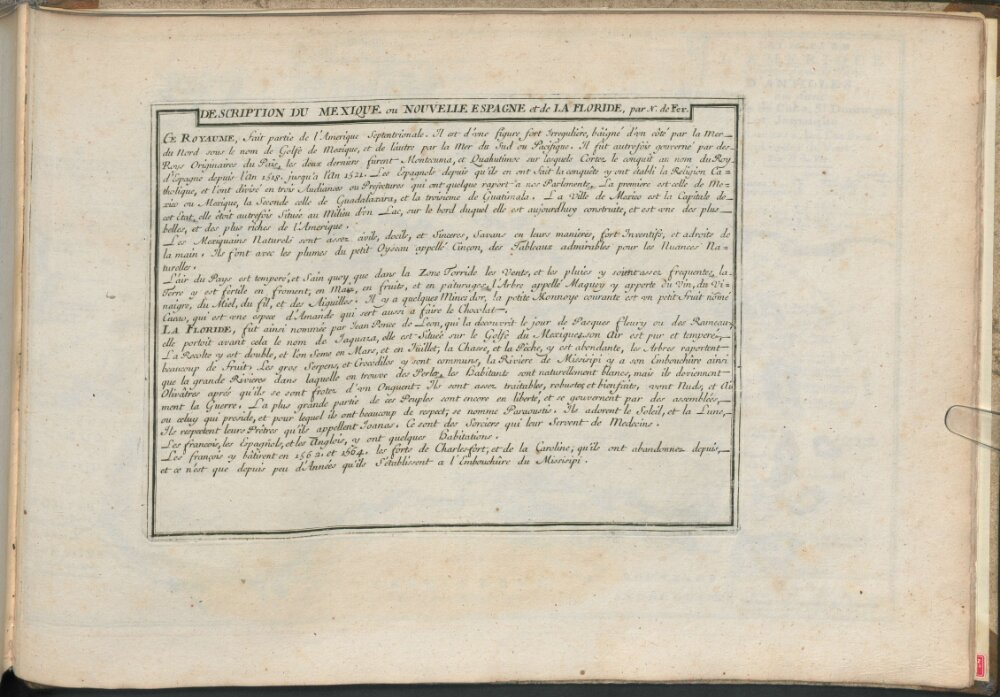 DESCRIPTION DU MEXIQUE ou NOUVELLE ESPAGNE et de LA FLORIDE, par N. de Fer.
CE ROYAUME, Fait partie de l'Amerique Septentrionale. Il est d'une figure fort Irreguliere, baigné d'un côté par la Mer
du Nord sous le nom de Golfe de Mexique, et de l'autre par la Mer du Sud ou Pacifique. Il fut autrefois gouverné par des
Roys Originaires du Païs, les deux derniers furent Montezuma, et Quahutimoc sur lesquels Cortez le conquit au nom du Roy
d'Espagne depuis l'An 1518. jusqu'a l'An 1521. Les Espagnols depuis qu'ils en ont fait la conquête y ont établi la Religion Ca-
tholique, et l'ont divisé en trois Audiances ou Prefectures qui ont quelque raport a nos Parlements. La premiere est celle de Me-
xico ou Mexique, la Seconde celle de Guadalaxara, et la troisieme de Guatimala. La Ville de Mexico est la Capitale de
cet Etat, elle étoit autrefois Située au Milieu d'un Lac, sur le bord duquel elle est aujourdhuy construite, et est une des plus
belles, et des plus riches de l'Amerique.
Les Mexiquains Naturels sont assez civils, docils, et Sinceres, Savans en leurs manieres, fort Inventifs, et adroits de
la main. Ils font avec les plumes du petit Oyseau appellé Cinçon, des Tableaux admirables pour les Nuances Na-
turelles.
L'air du Pays est temperé, et Sain quoy que dans la Zone Torride les Vents, et les pluies y soient assez frequentes, la
Terre y est fertile en froment, en Maz, en fruits, et en paturages, l'Arbre appellé Maquey y apporte du Vin, du Vi-
naigre, du Miel, du fil, et des Aiguilles. Il y a quelques Mines d'or, la petite Monnoye courante est un petit Fruit nômé
Cacao, qui est une espece d'Amande qui sert aussi a faire le Chocolat.
LA FLORIDE, fût ainsi nommée par Jean Ponce de Leon, qui la découvrit le jour de Pasques fleury ou des Rameaux,
elle portoit avant cela le nom de Jaquaza, elle est Située sur le Golfe du Mexique, son Air est pur et temperé,
La Recolte y est double, et l'on Seme en Mars, et en Juillet, la Chasse, et la Pêche, y est abondante, les Arbres raportent
beaucoup de Fruit. Les gros Serpens, et Crocodiles y sont communs, la Riviere de Missisipi y a son Embouchûre ainsi
que la grande Riviere dans laquelle on trouve des Perles, les Habitants sont naturellement blancs, mais ils deviennent
Olivâtres aprés qu'ils se sont frotez d'un Onguent. Ils sont assez traitables, robustes, et bienfaits, vont Nuds, et Ai-
ment la Guerre. La plus grande partie de ces Peuples sont encore en liberté, et se gouvernent par des assemblées,
ou celuy qui preside, et pour lequel ils ont beaucoup de respect, se nomme Paraoustis. Ils adorent le Soleil, et la Lune,
Ils respectent leurs Prêtres qu'ils appellent Joanas. Ce sont des Sorciers qui leur Servent de Medecins.
Les francois, les Espagnols, et les Anglois, y ont quelques Habitations.
Les françois y bâtirent en 1562. et 1564. les forts de Charlesfort, et de la Caroline, qu'ils ont abandonnez depuis,
et ce n'est que depuis peu d'Années qu'ils S'établissent a l'Embouchûre du Missisipi.